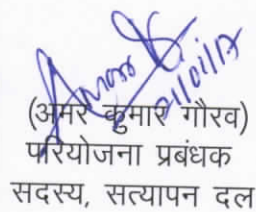 21/01/17
(अमर कुमार गौरव)
परियोजना प्रबंधक
सदस्य, सत्यापन दल